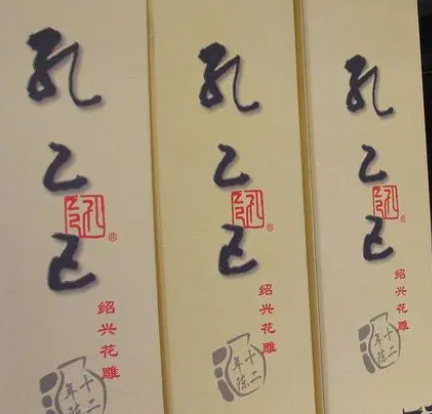 孔乙己
®
绍兴花雕
十二
年陈
孔乙己
®
绍兴花雕
十二
年陈
孔乙己
®
绍兴花雕
十二
年陈